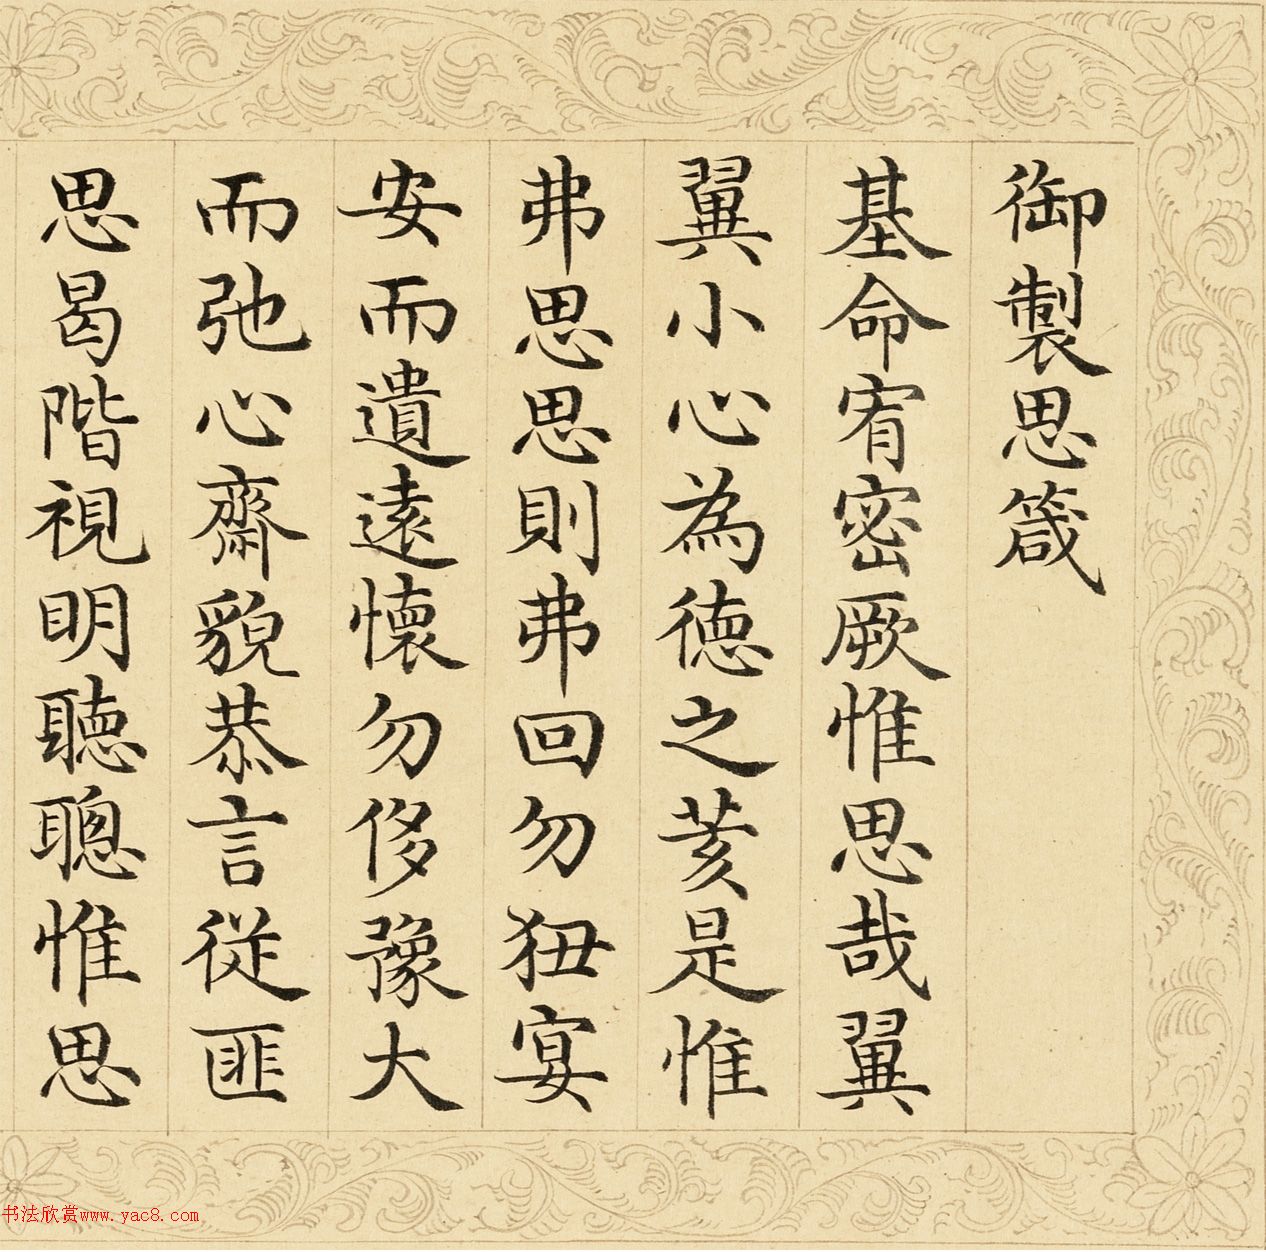 御製思箴
基命宥密厥惟思哉翼
翼小心為德之荄是惟
弗思思則弗回勿狃宴
安而遺遠懷勿侈豫大
而弛心齋貌恭言從匪
思曷階視明聽聰惟思
书法欣赏www.yac8.com